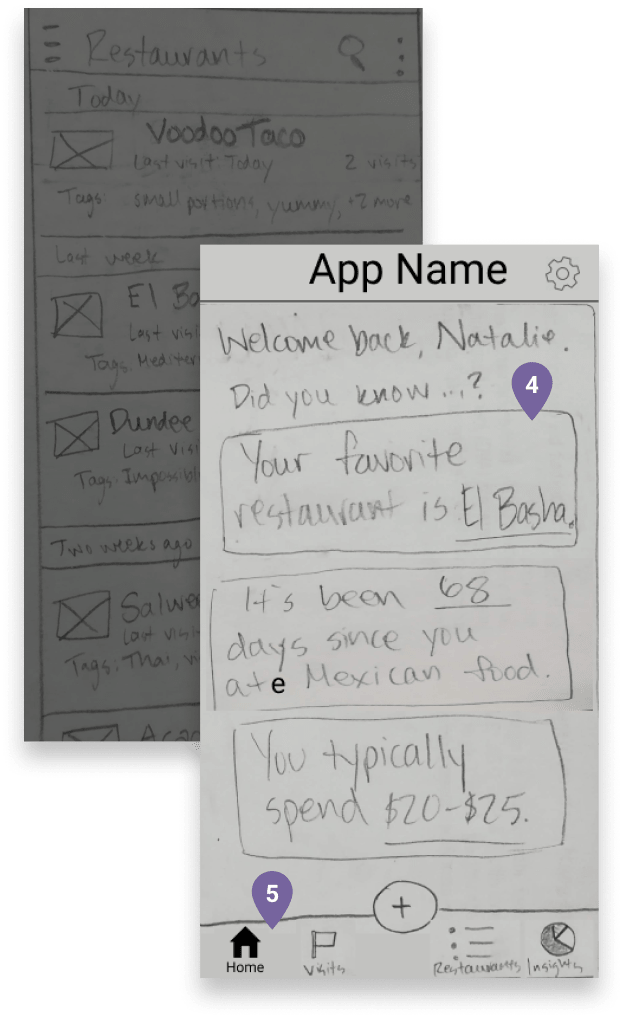 Restaurants
Today
Voodoo Taco
Last visit: Today 2 visits
Tags: small portions, yummy, +2 more
Last week
El Ba
Last visi
Tags: Mediter
Dundee
Last visi
Tags: Impossibl
Two weeks ago
Salwe
Last visi
Tags: Thai, vi
Aca
App Name
Welcome back, Natalie.
Did you know...?
4
Your favorite
restaurant is El Basha.
It's been 68
days since you
ate Mexican food.
You typically
spend $20-$25.
5
+
Home Visits Restaurants Insights